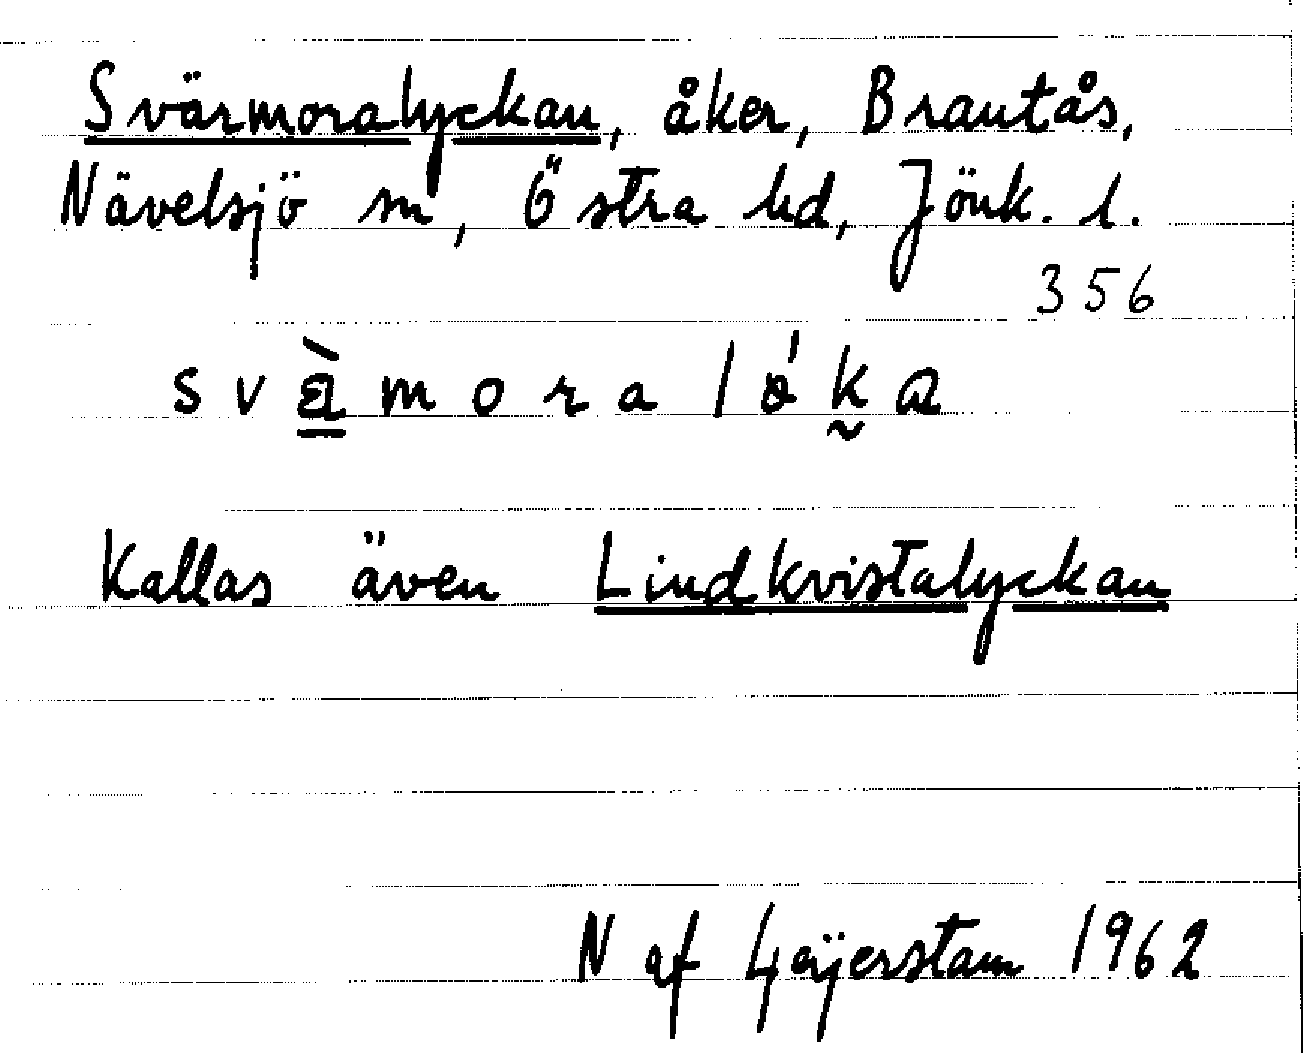 Svärmoralyckan, åker, Brantås,
Nävelsjö sn, Östra hd, Jönk. l.
356
Kallas även Lindkvistalyckan
N af Geijerstam 1962